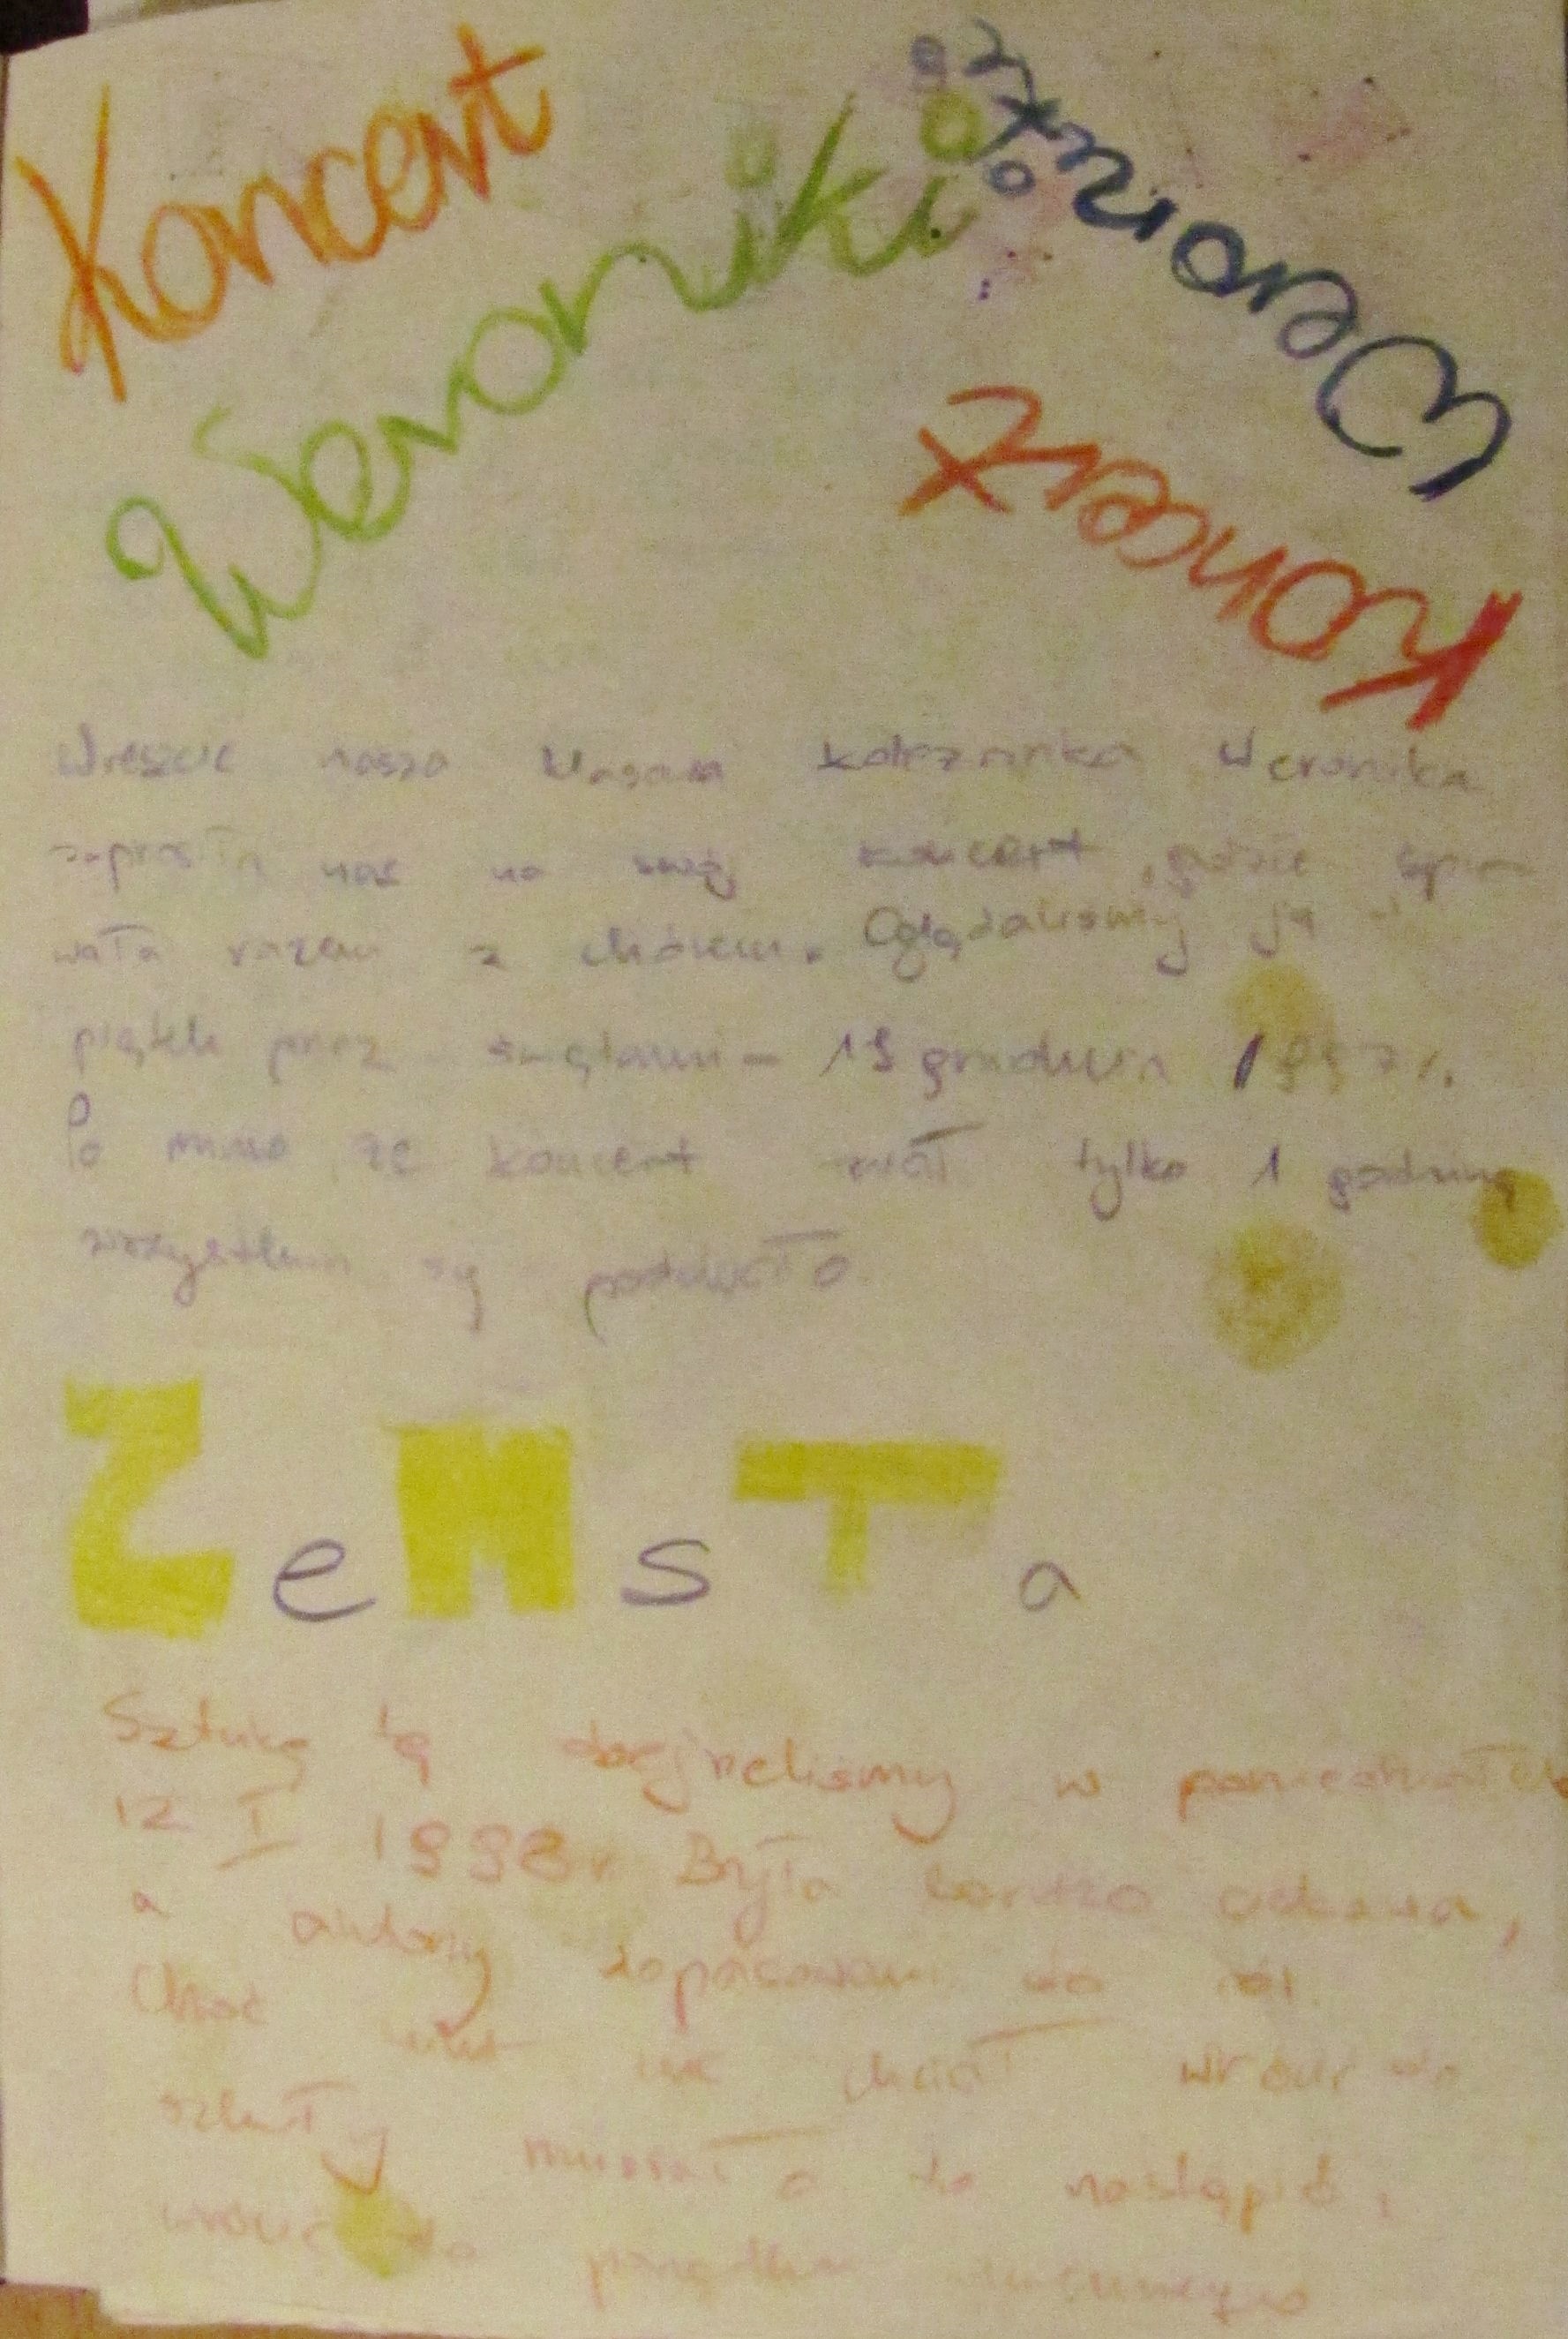 Koncert
Weroniki
Weroniki
Koncert
Wreszcie nasza koleżanka Weronika
zaprosiła nas na swój koncert, gdzie śpie-
wała razem z chórem. Oglądaliśmy ją w
piątek przez świętami - 19 grudnia 1997 r.
Po mimo że koncert trwał tylko 1 godzinę
wszystkim się podobało.
ZeMsTa
Sztukę tę obejrzeliśmy w poniedziałek
12 I 1998 r. Była bardzo ciekawa,
a dopasowani do ról.
Choć nikt nie chciał wrócić do
szkoły musiało to nastąpić,
wrócić do